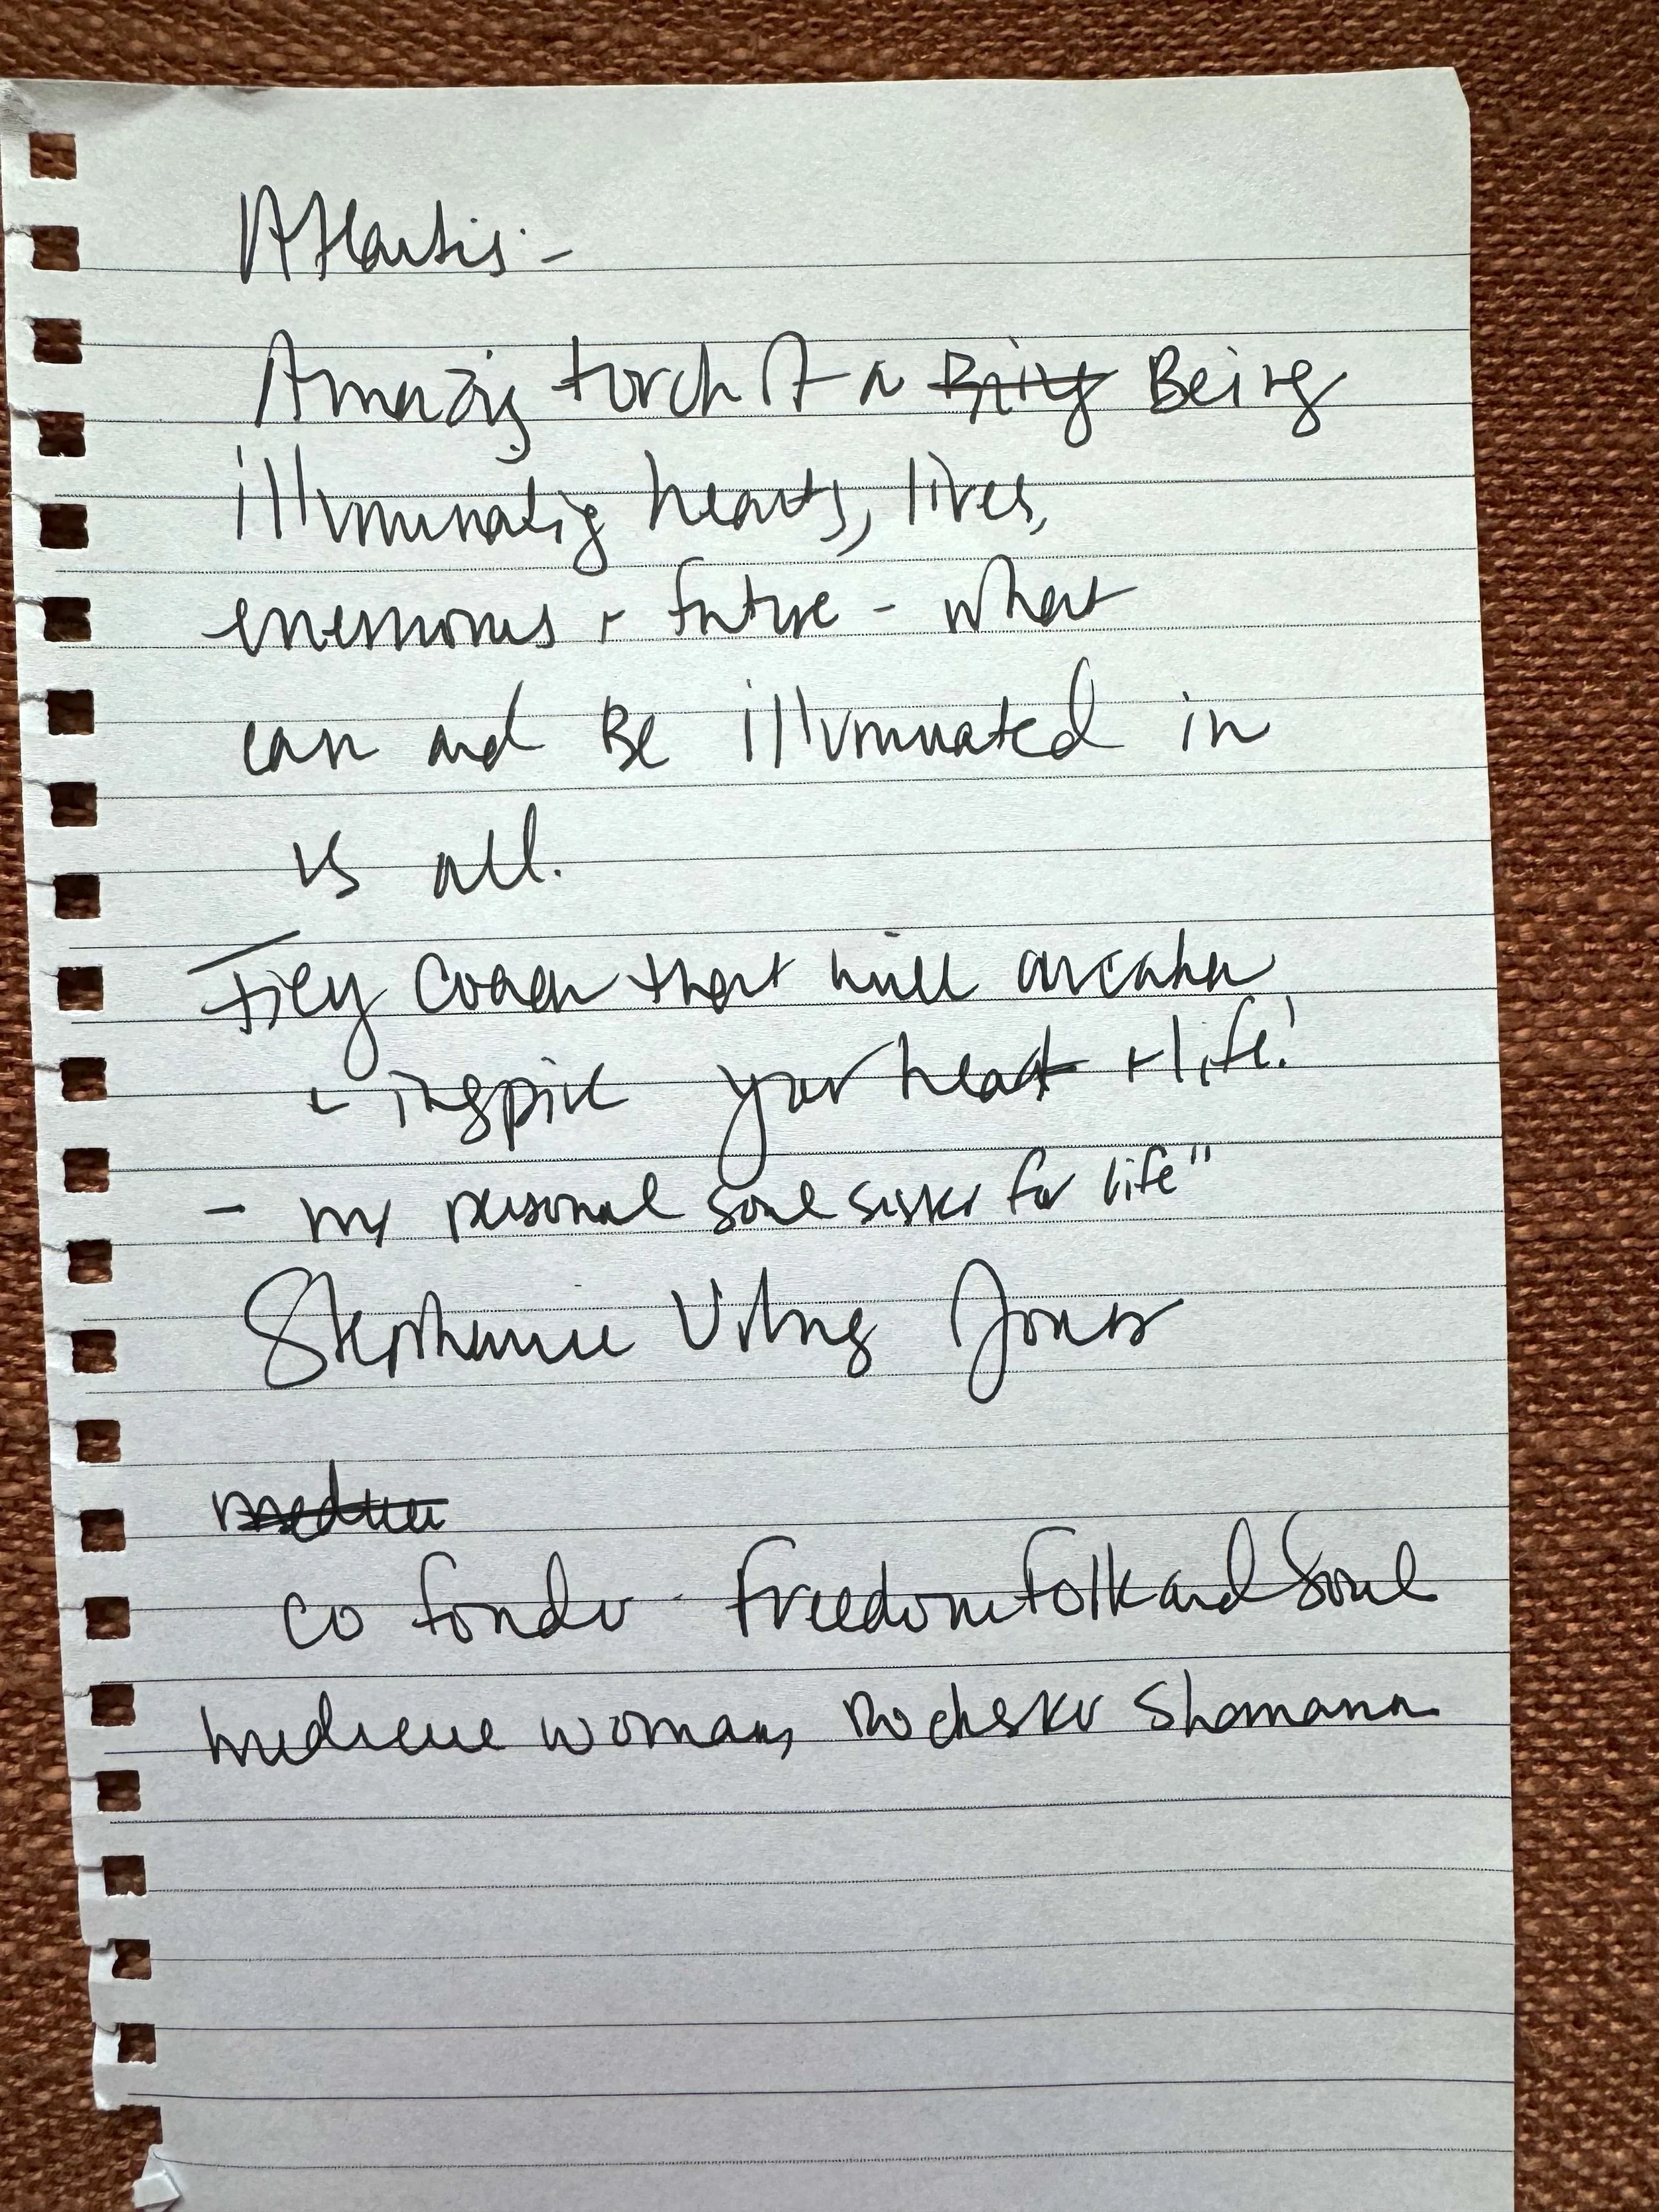 Atlantis -
Amazing torch of a Being Being
illuminating hearts, lives,
+ future - what
can and Be illuminated in
us all.
Firey Coach that will awaken
+ inspire your heart + life!
- my personal soul sister for life"
Stephanie Jones
co fonder - FreedomFolkandSoul
medicine woman, Rochester Shamana